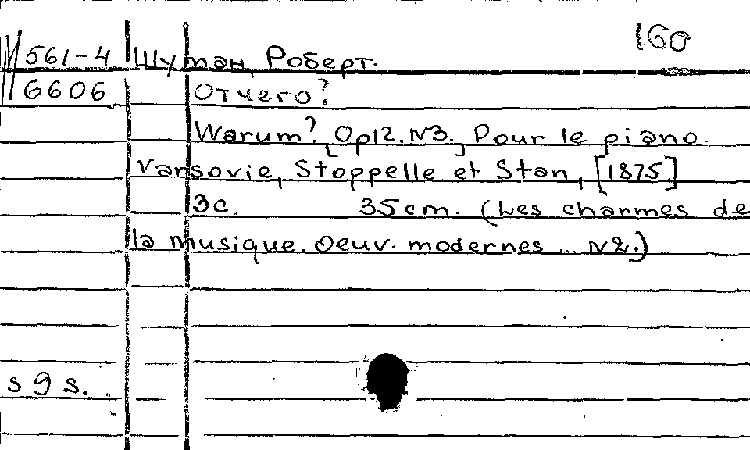 160
М 561-4 Шуман, Роберт.
6606 Отчего?
Warum?, [Op12. N3.] Pour le piano.
Varsovie, Stoppelle et Stan, [1875]
3c. 35cm. (Les charmes de
la musique. Oeuv. modernes .. N2.)
s 9 s.